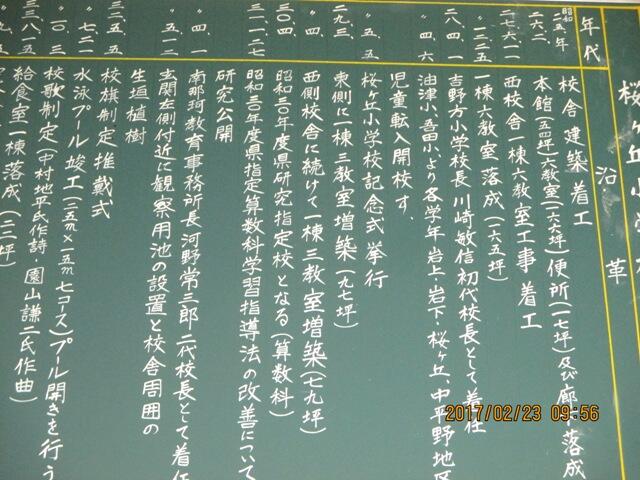 桜ヶ丘小学
沿革
年代
昭和二五年 校舎建築着工
二六、二、 本館(五四坪)六教室(一六六坪)便所(一七坪)及び廊下落成
二七、六、一一 西校舎一棟六教室工事着工
〃 一二、二五 一棟六教室落成(一六五坪)
二八、四、一 吉野方小学校長 川崎敏信初代校長として着任
〃 四、六 油津小、吾田小より各学年 岩上・岩下・桜ヶ丘、中平野地区
児童転入開校す、
〃 五、五 桜ヶ丘小学校記念式挙行
二九、三、 東側に一棟三教室増築(九七坪)
〃 四、 西側校舎に続けて一棟三教室増築(七九坪)
三〇、四、 昭和三〇年度県研究指定校となる(算数科)
三一、一、二七 昭和三〇年度県指定算数科学習指導法の改善について
研究公開
〃 四、一 南那珂教育事務所長河野常三郎二代校長として着任
〃 五、一二 玄関左側付近に観察用池の設置と校舎周囲の
生垣植樹
三二、五、五 校旗制定推戴式
〃 七、二一 水泳プール竣工(二五m×一五m 七コース)プール開きを行う
〃 一〇、三 校歌制定(中村地平氏作詩 園山謙二氏作曲)
三三、八、五 給食室一棟落成(三二坪)
2017/02/23 09:56